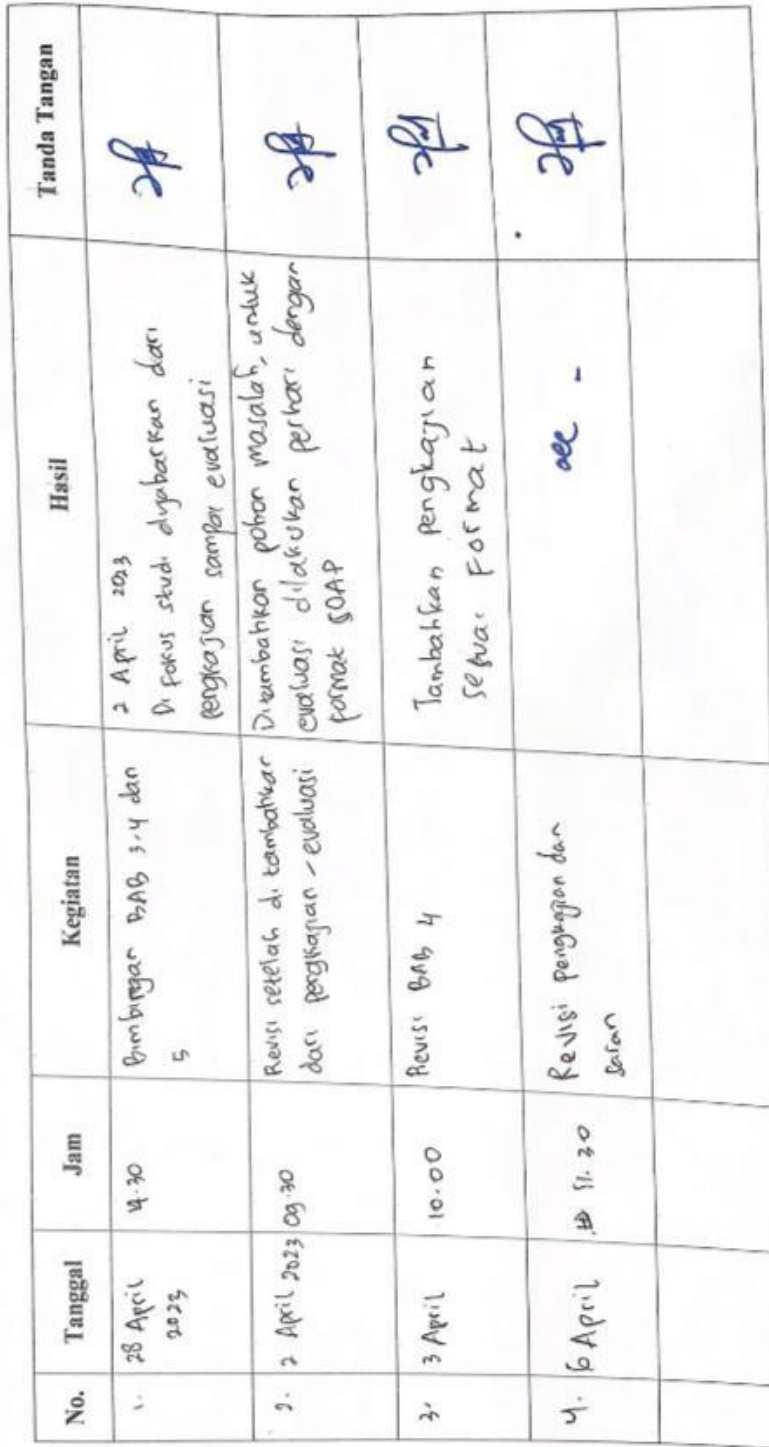 No. Tanggal Jam Kegiatan Hasil Tanda Tangan
1. 28 April 14.30 Bimbingan BAB 3,4 dan 2 April 2023
2023 5 Di fokus studi dijabarkan dari
pengkajian sampai evaluasi
2. 2 April 2023 09.30 Revisi setelah di tambahkan Ditambahkan pohon masalah, untuk
dari pengkajian - evaluasi evaluasi dilakukan perhari dengan
format SOAP
3. 3 April 10.00 Revisi BAB 4 Tambahkan pengkajian
sesuai format
4. 6 April 11.30 Revisi pengkajian dan acc -
saran